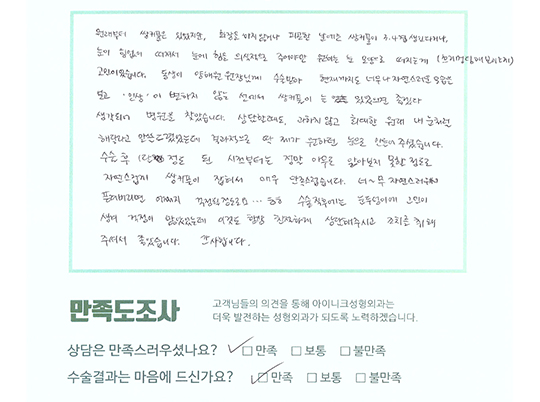 원래부터 쌍꺼풀은 있었지만, 화장을 하지 않거나 피곤한 날에는 쌍꺼풀이 3,4겹 생긴다거나,
눈이 쉽게 떠져서 눈에 힘을 의식적으로 주어야만 원하는 눈 모양으로 떠지는게
고민이었습니다. 동생이 양해원 원장님께 수술받아 현재까지도 너무나 자연스러운 모습을
보고 '인상'이 변하지 않는 선에서 쌍꺼풀이 있었으면 좋겠다
생각되어 병원을 찾았습니다. 상담할때도, 과하지 않고 최대한 원래 내 눈처럼
해달라고 말씀드렸었는데 결과적으로 딱 제가 원하던 눈으로 만들어주셨습니다.
수술 후 1달 정도 된 시점부터는 정말 아무도 알아보지 못할 정도로
자연스럽게 쌍꺼풀이 잡혀서 매우 만족스럽습니다. 너~무 자연스러워서
걱정될정도로요... 수술직후에는 눈두덩이에
생겨 걱정이 많았었는데 이것도 항상 친절하게 상담해주시고 조치를 취해
주셔서 좋았습니다. 감사합니다.
만족도조사
고객님들의 의견을 통해 아이니크성형외과는
더욱 발전하는 성형외과가 되도록 노력하겠습니다.
상담은 만족스러우셨나요? ✓□ 만족 □ 보통 □ 불만족
수술결과는 마음에 드신가요? ✓□ 만족 □ 보통 □ 불만족